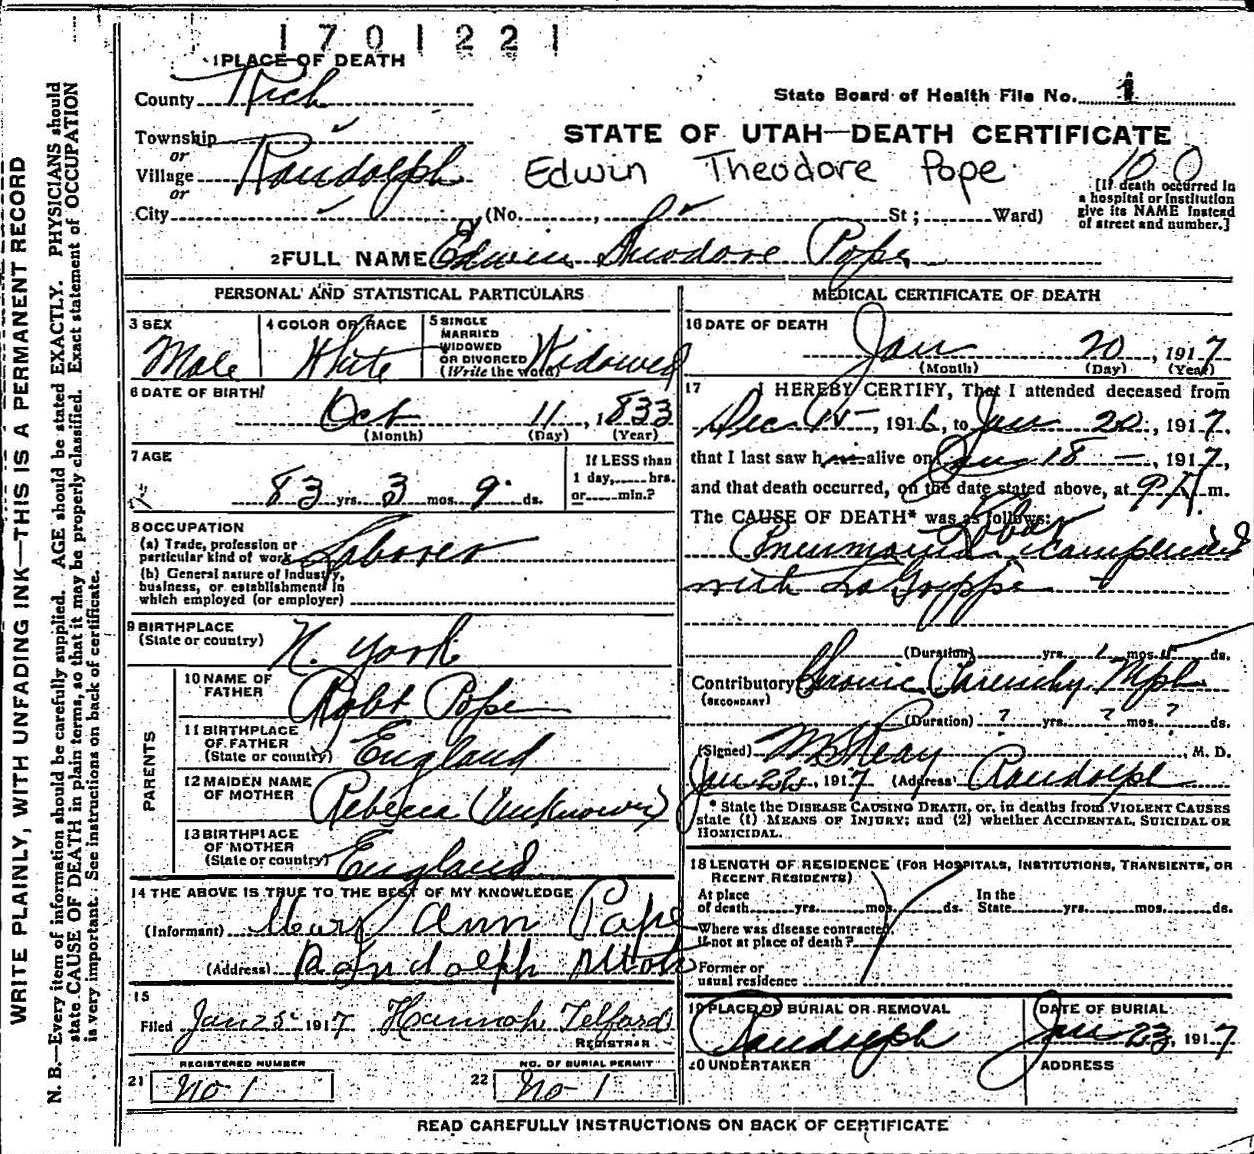 1701221
1 PLACE OF DEATH
County Rich
State Board of Health File No. 1
Township
or
Village Randolph
or
City (No. , St ; Ward)
STATE OF UTAH—DEATH CERTIFICATE
Edwin Theodore Pope
100
[If death occurred in
a hospital or institution
give its NAME instead
of street and number.]
2 FULL NAME Edwin Theodore Pope
PERSONAL AND STATISTICAL PARTICULARS
3 SEX
Male
4 COLOR OR RACE
White
5 SINGLE
MARRIED
WIDOWED
OR DIVORCED
(Write the word)
Widowed
6 DATE OF BIRTH
Oct 11, 1833
(Month) (Day) (Year)
7 AGE
83 yrs. 3 mos. 9 ds.
If LESS than
1 day, hrs.
or min.?
8 OCCUPATION
(a) Trade, profession or
particular kind of work Laborer
(b) General nature of Industry,
business, or establishment in
which employed (or employer)
9 BIRTHPLACE
(State or country) N. York
PARENTS
10 NAME OF
FATHER Robt Pope
11 BIRTHPLACE
OF FATHER
(State or country) England
12 MAIDEN NAME
OF MOTHER Rebecca (Unknown)
13 BIRTHPLACE
OF MOTHER
(State or country) England
14 THE ABOVE IS TRUE TO THE BEST OF MY KNOWLEDGE
(Informant) Mary Ann Pope
(Address) Randolph Utah
15
Filed Jan 25 1917 Hannah Telford
REGISTRAR
REGISTERED NUMBER
21 No 1
NO. OF BURIAL PERMIT
22 No 1
MEDICAL CERTIFICATE OF DEATH
16 DATE OF DEATH
Jan 20, 1917
(Month) (Day) (Year)
17 I HEREBY CERTIFY, That I attended deceased from
Dec 15, 1916, to Jan 20, 1917,
that I last saw h alive on Jan 18, 1917,
and that death occurred, on the date stated above, at 9 A. m.
The CAUSE OF DEATH* was as follows:
Lobar
Pneumonia
with La Grippe
(Duration) yrs. 1 mos. ds.
Contributory Chronic
(SECONDARY)
(Duration) ? yrs. ? mos. ? ds.
(Signed) , M. D.
Jan 22, 1917 (Address) Randolph
* State the DISEASE CAUSING DEATH, or, in deaths from VIOLENT CAUSES
state (1) MEANS OF INJURY; and (2) whether ACCIDENTAL, SUICIDAL OR
HOMICIDAL.
18 LENGTH OF RESIDENCE (FOR HOSPITALS, INSTITUTIONS, TRANSIENTS, OR
RECENT RESIDENTS)
At place
of death yrs. mos. ds.
In the
State yrs. mos. ds.
Where was disease contracted
if not at place of death?
Former or
usual residence
19 PLACE OF BURIAL OR REMOVAL
Randolph
DATE OF BURIAL
Jan 23, 1917
20 UNDERTAKER
ADDRESS
READ CAREFULLY INSTRUCTIONS ON BACK OF CERTIFICATE
WRITE PLAINLY, WITH UNFADING INK—THIS IS A PERMANENT RECORD
N. B.—Every item of information should be carefully supplied. AGE should be stated EXACTLY. PHYSICIANS should
state CAUSE OF DEATH in plain terms, so that it may be properly classified. Exact statement of OCCUPATION
is very important. See instructions on back of certificate.